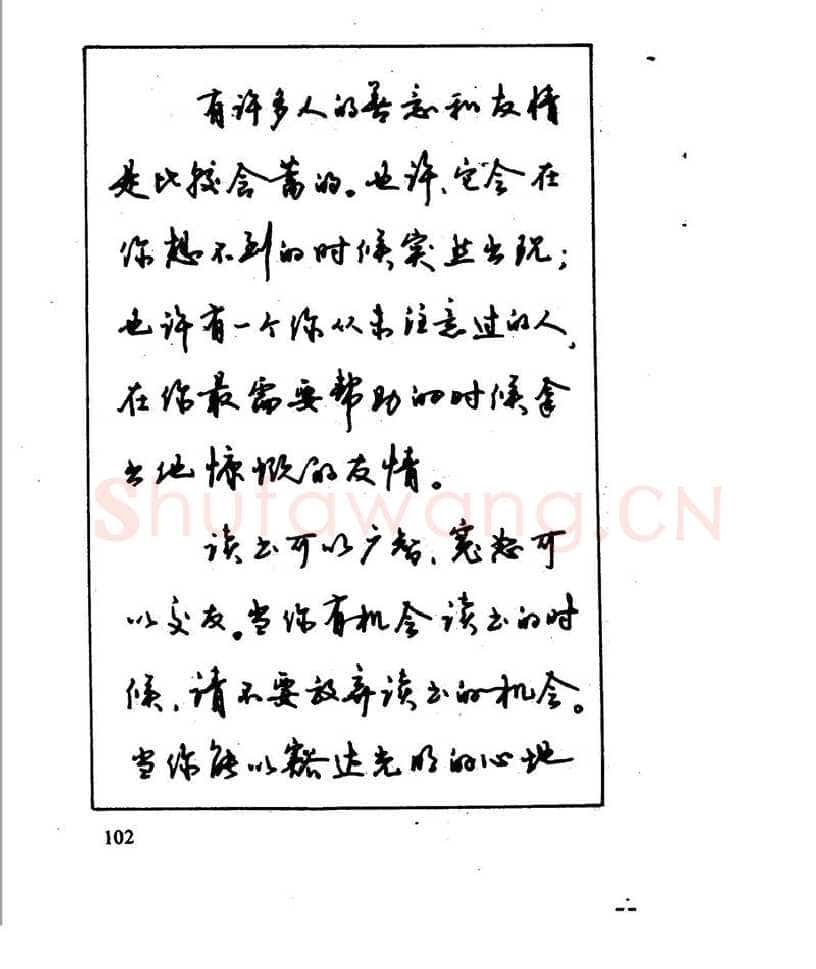 有许多人的善意和友情
是比较含蓄的。也许、它会在
你想不到的时候突然出现；
也许有一个你从未注意过的人，
在你最需要帮助的时候拿
出他慷慨的友情。
读书可以广智、宽恕可
以交友。当你有机会读书的时
候，请不要放弃读书的机会。
当你能以豁达光明的心地
102
Shufawang.CN